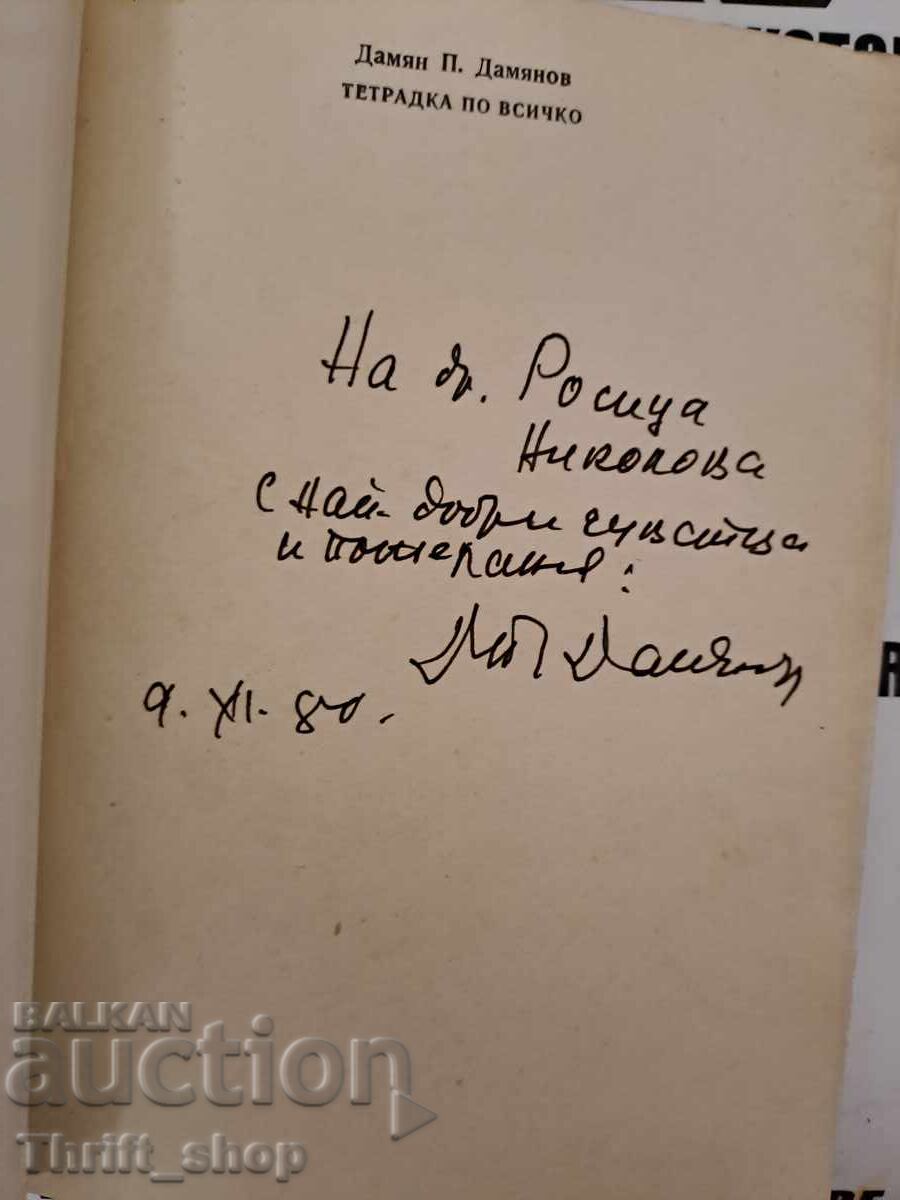 Дамян П. Дамянов
ТЕТРАДКА ПО ВСИЧКО
На др. Росица
Николова
с най-добри чувства
и пожелания:
Дамянов
9. XI. 80.
BALKAN
auction
Thrift_shop